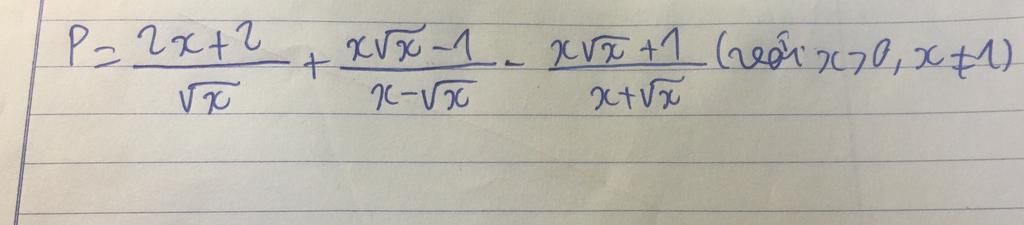 P = \frac{2x+2}{\sqrt{x}} + \frac{x\sqrt{x}-1}{x-\sqrt{x}} - \frac{x\sqrt{x}+1}{x+\sqrt{x}} (với x>0, x≠1)